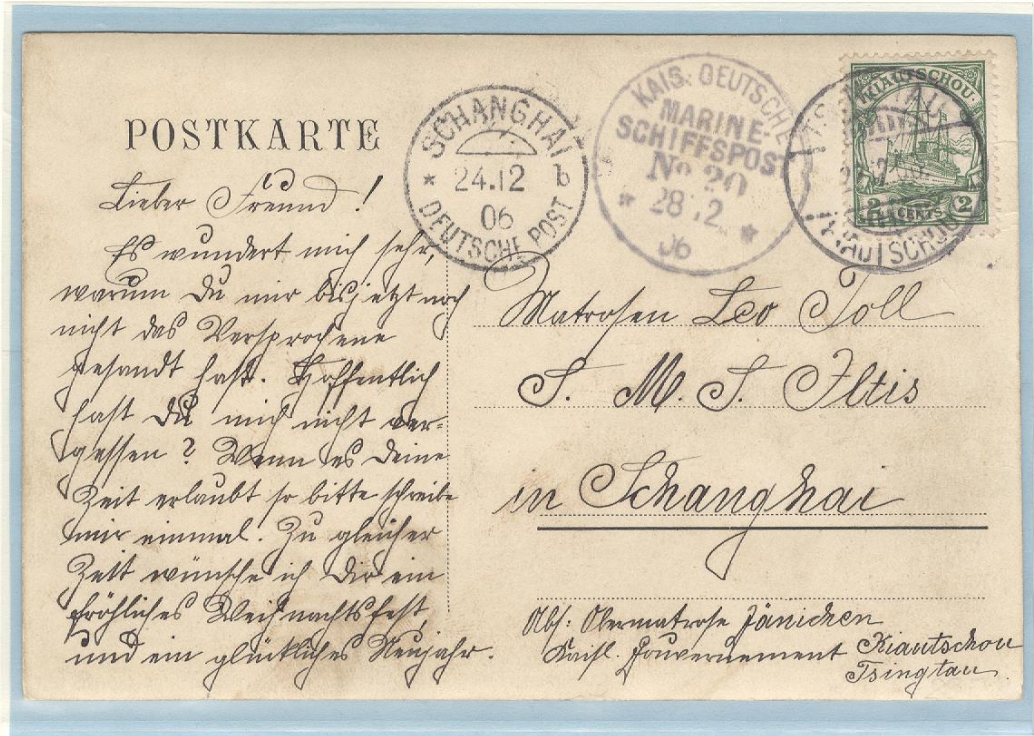 POSTKARTE
SCHANGHAI
* 24.12 b
06
DEUTSCHE POST
KAIS. DEUTSCHE
MARINE-
SCHIFFSPOST
No 20
* 28 12 *
06
KIAUTSCHOU
2 CENTS 2
TSINGTAU
KIAUTSCHOU
Lieber Freund!
Es wundert mich sehr,
warum Du mir bis jetzt noch
nicht das Versprochene
gesandt hast. Hoffentlich
hast Du mich nicht ver-
gessen? Wenn es Deine
Zeit erlaubt so bitte schreibe
mir einmal. Zu gleicher
Zeit wünsche ich Dir ein
fröhliches Weihnachtsfest,
und ein glückliches Neujahr.
Matrosen Leo Toll
S. M. S. Iltis
in Schanghai
Abs: Obermatrose Jänichen
Kaisl. Gouvernement Kiautschou
Tsingtau.